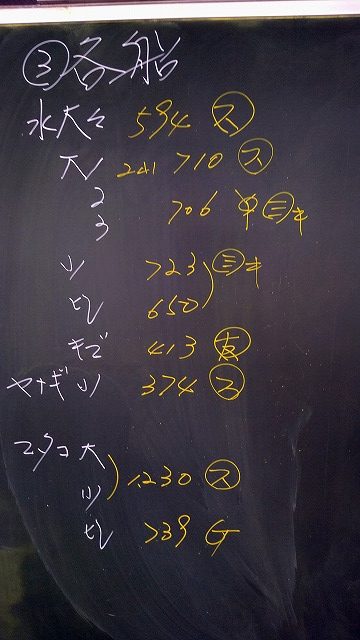 ③各船
水大々 594 ス
大1 241 710 ス
2
3 706 三キ
小 723 三キ
ヒレ 650
キズ 413 友
ヤナギ小 374 ス
マダコ大
小 1,230 ス
ヒレ 739 G